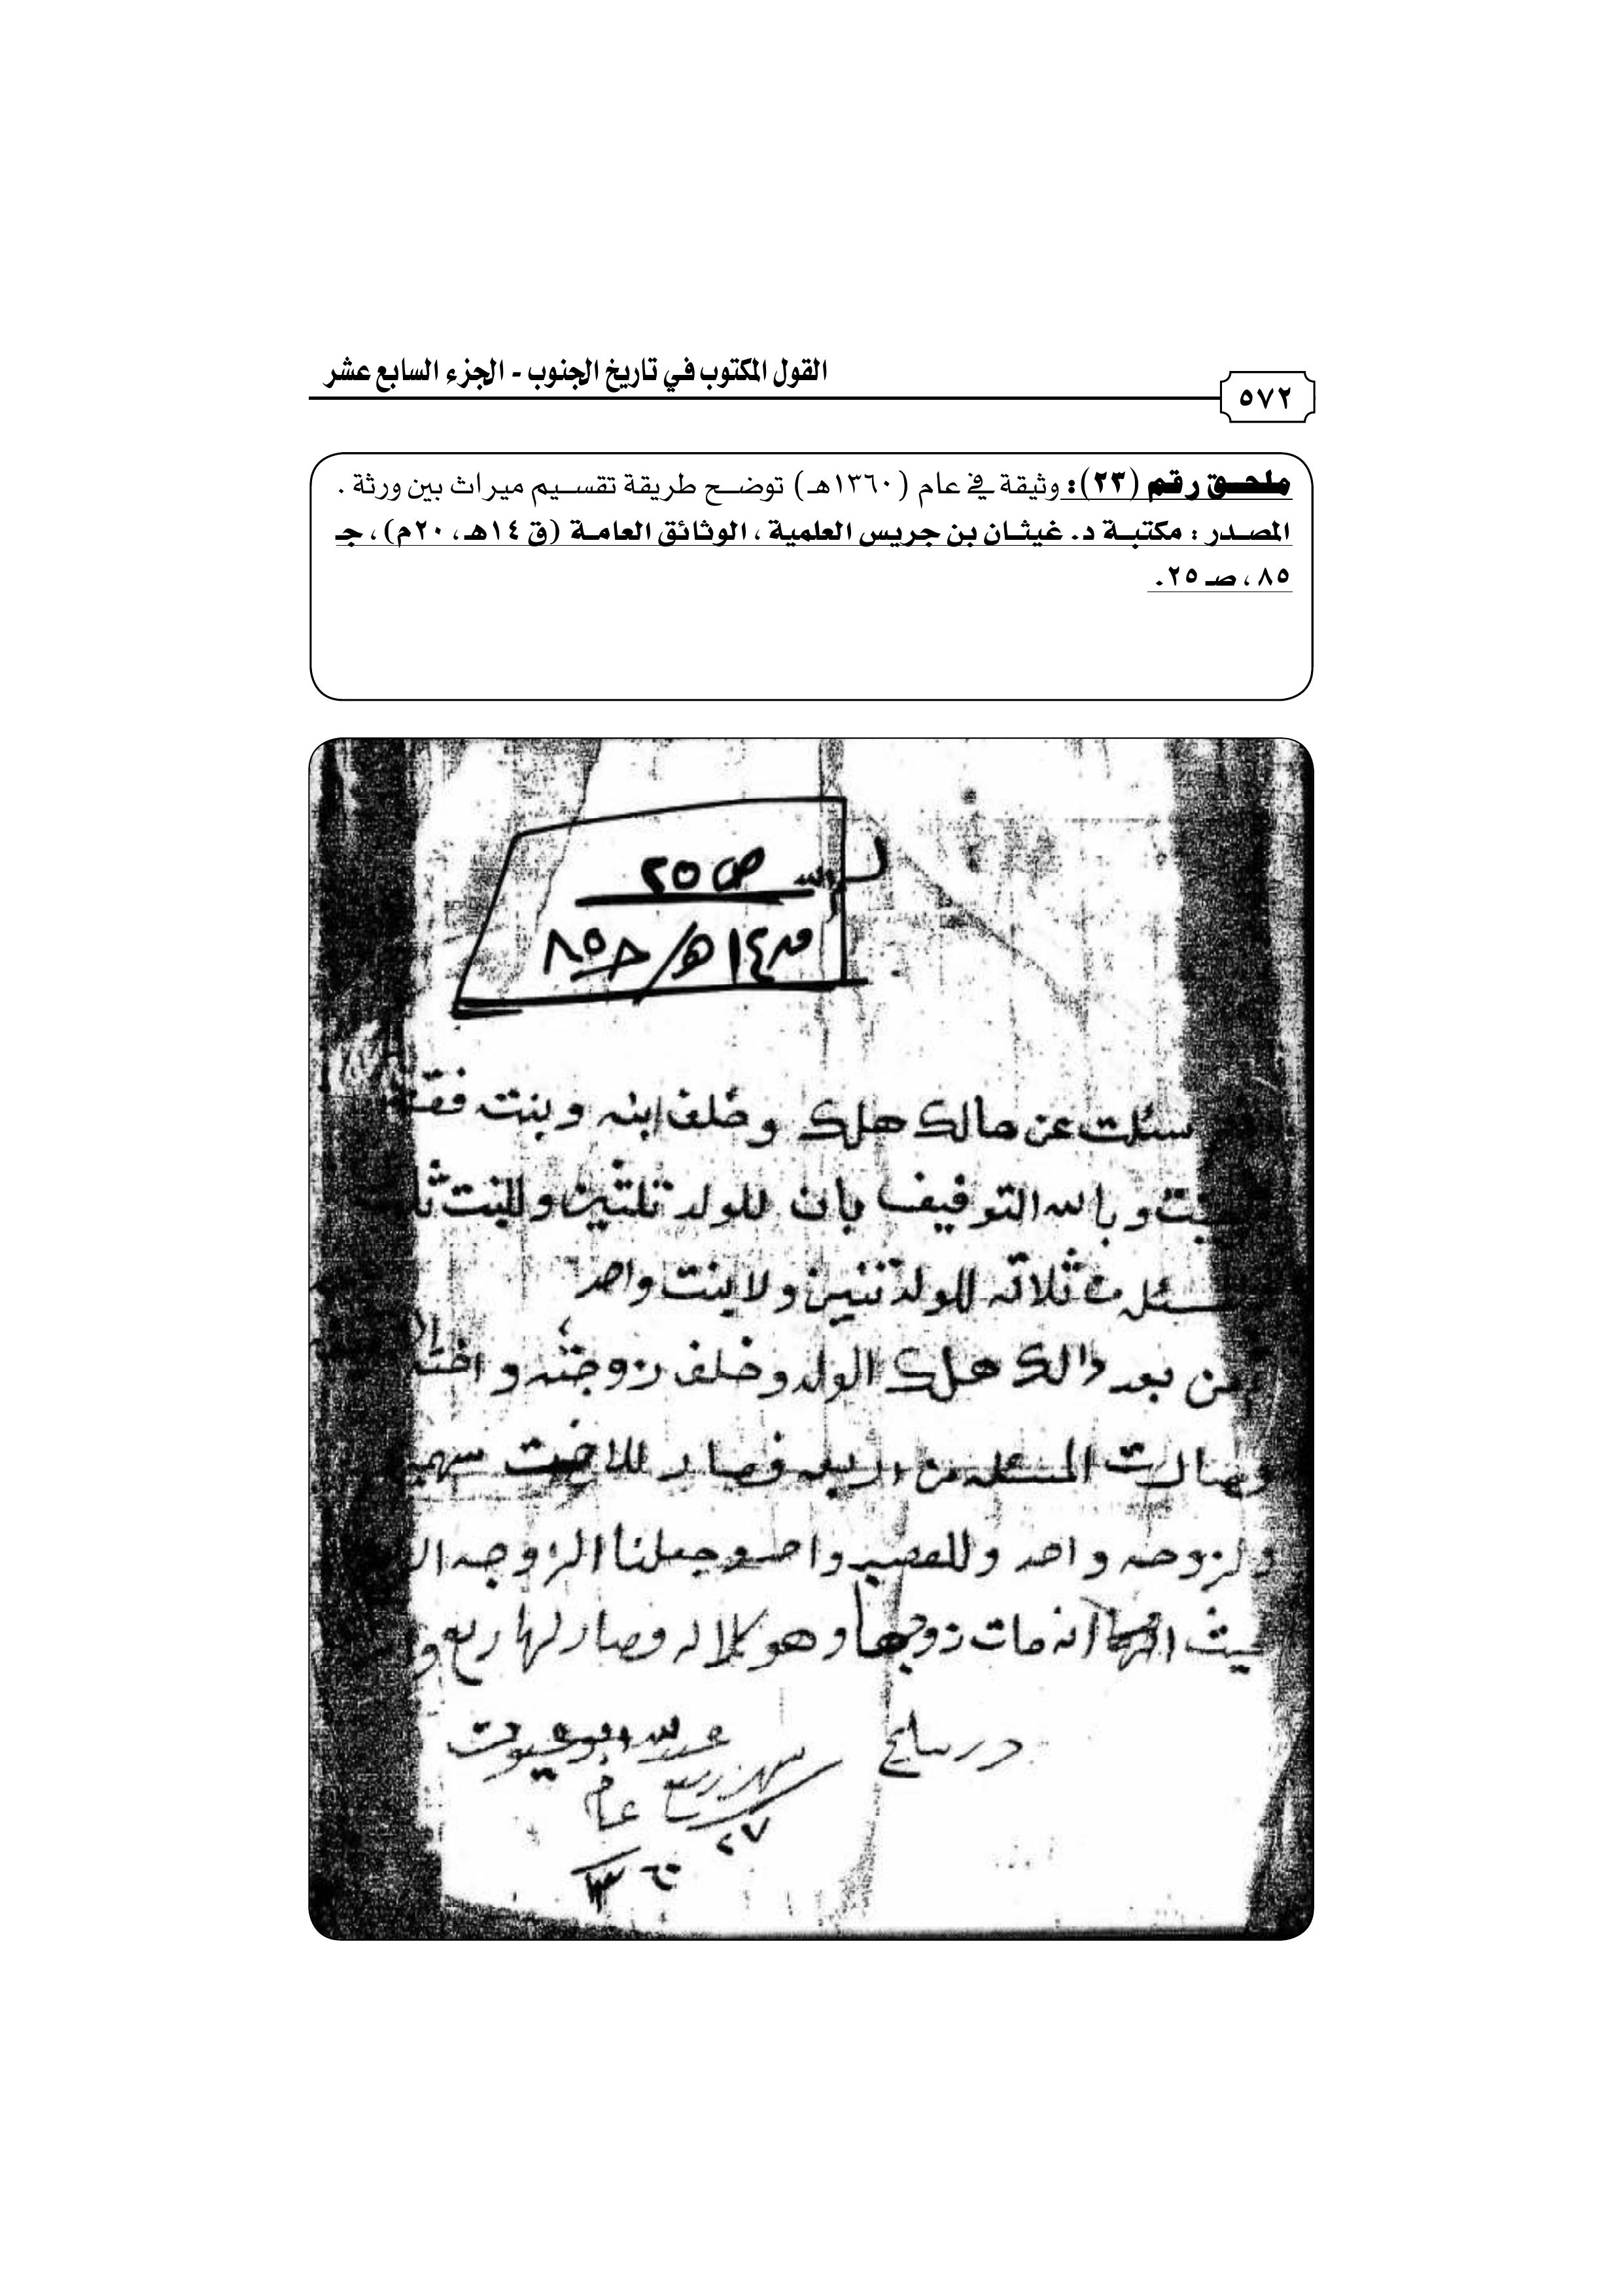 القول المكتوب في تاريخ الجنوب - الجزء السابع عشر
٥٧٢
ملحق رقم (٢٣): وثيقة في عام (١٣٦٠هـ) توضح طريقة تقسيم ميراث بين ورثة .
المصدر : مكتبة د. غيثان بن جريس العلمية ، الوثائق العامة (ق ١٤هـ، ٢٠م) ، جـ
٨٥ ، صـ ٢٥.
ص ٢٥
ق ١٤ هـ / جـ ٨٥
سئلت عن مالك هلك وخلف ابنه وبنت
وبالله التوفيق بان للولد ثلثين وللبنت
ثلاثه للولد تنين ولابنت واحد
من بعد ذالك هلك الولد وخلف زوجته و
وصارت المسئله من اربعه فصار للاخت
ولزوجه واحد وللعصبه واحد وجعلنا الزوجه
حيث انه مات زوجها وهو كلاله وصار لها ربع
عبدالله
ربيع عام
٢٧
١٣٦٠